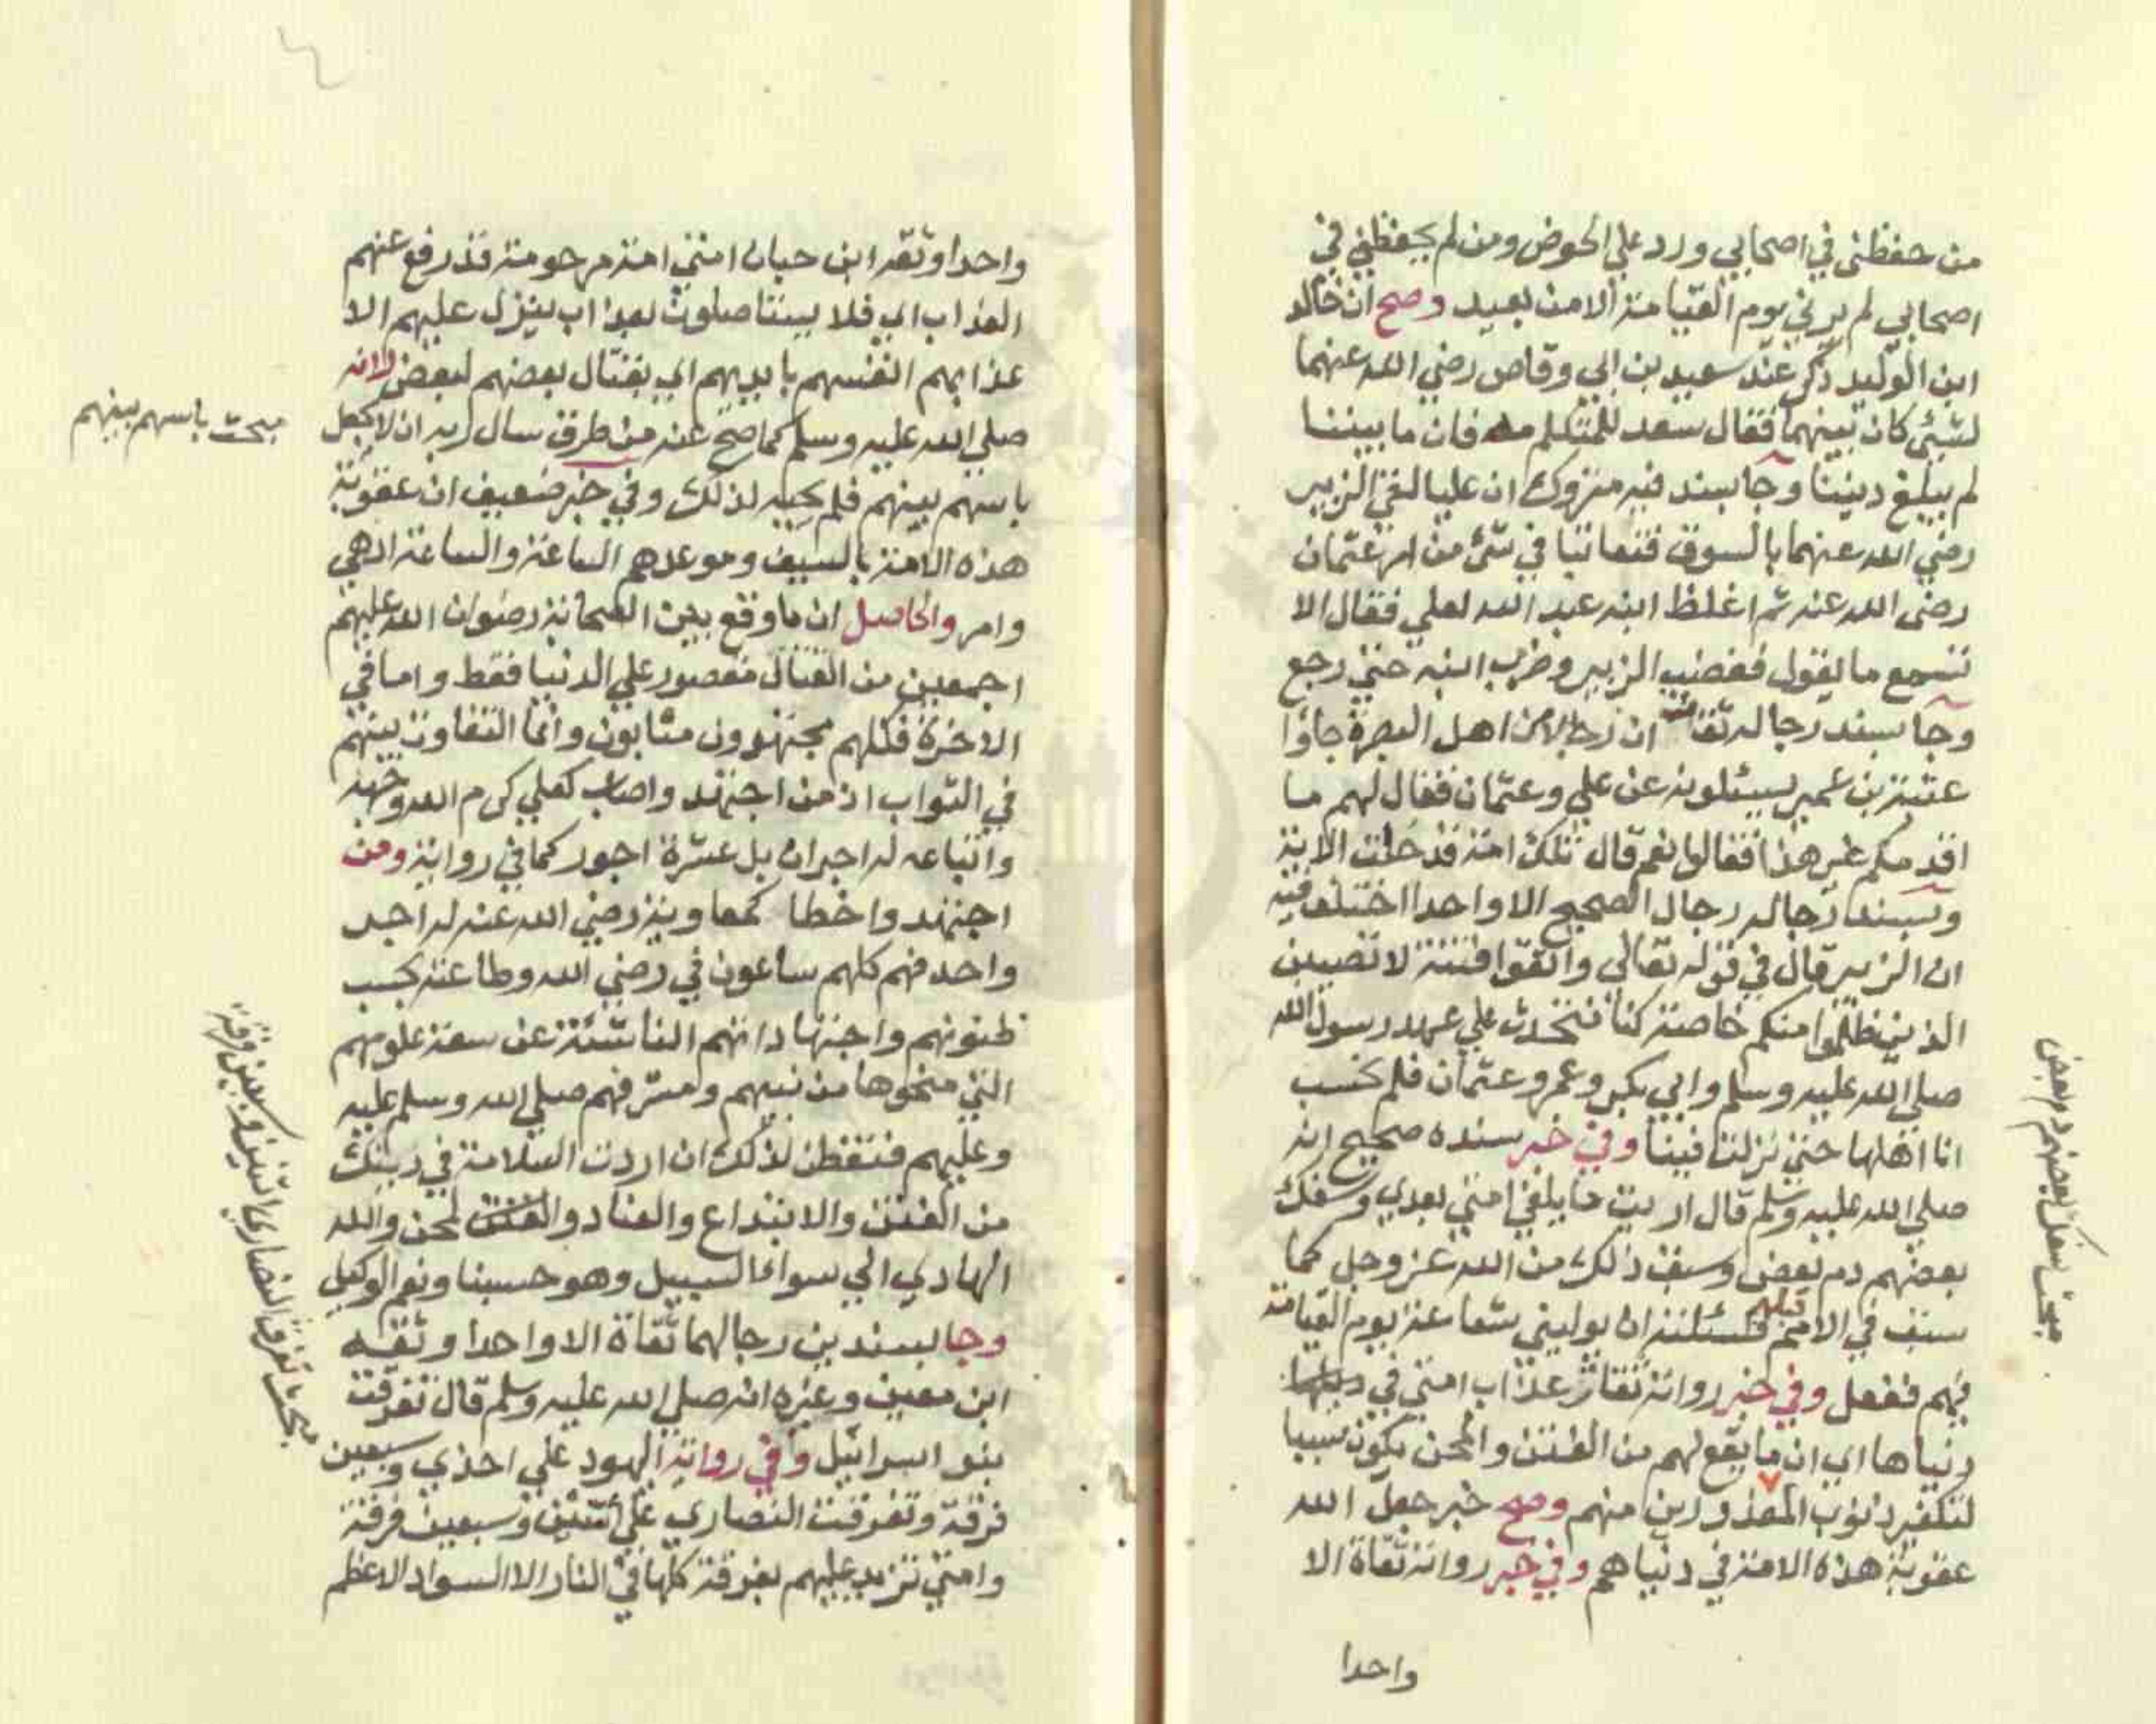 من حفظني في اصحابي ورد علي الحوض ومن لم يحفظني في
اصحابي لم يرني يوم القيامة الا من بعيد وصح ان خالد
ابن الوليد ذكر عند سعيد بن ابي وقاص رضي الله عنهما
لشئ كان بينهما فقال سعد للمتكلم مه فان ما بيننا
لم يبلغ ديننا وجا بسند فيه متروك ان عليا لقي الزبير
رضي الله عنهما بالسوق فتعاتبا في شئ من امر عثمان
رضي الله عنه ثم اغلظ ابنه عبد الله لعلي فقال الا
تسمع ما يقول فغضب الزبير وضرب ابنه حتي رجع
وجا بسند رجاله ثقات ان رجالا من اهل البصرة جاؤا
عتبة بن عمير يسئلونه عن علي وعثمان فقال لهم ما
اقدمكم غير هذا فقالوا نعم قال تلك امة قد خلت الاية
وبسند رجاله رجال الصحيح الا واحدا اختلف فيه
ان الزبير قال في قوله تعالي واتقوا فتنة لا تصيبن
الذين ظلموا منكم خاصة كنا نتحدث علي عهد رسول الله
صلي الله عليه وسلم وابي بكر وعمر وعثمان فلم نحسب
انا اهلها حتي نزلت فينا وفي خبر سنده صحيح انه
صلي الله عليه وسلم قال اريت ما يلقي امتي بعدي وسفك
بعضهم دم بعض وسبق ذلك من الله عز وجل كما
سبق في الامم قبلهم فسئلته ان يوليني شفاعة يوم القيامة
فيهم ففعل وفي خبر رواته ثقات عذاب امتي في
دنياها اي ان ما يقع لهم من الفتن والمحن يكون سببا
لتكفير ذنوب المعذورين منهم وصح خبر جعل الله
عقوبة هذه الامة في دنياهم وفي خبر رواته ثقاة الا
واحدا
مبحث سفك بعضهم دم بعض
واحدا وثقه ابن حبان امتي امة مرحومة قد رفع عنهم
العذاب اي فلا يستاصلون بعذاب ينزل عليهم الا
عذابهم انفسهم بايديهم اي بقتال بعضهم لبعض لانه
صلي الله عليه وسلم كما صح عنه من طرق سال ربه ان لا يجعل
باسهم بينهم فلم يجبه لذلك وفي خبر ضعيف ان عقوبة
هذه الامة بالسيف وموعدهم الساعة والساعة ادهي
وامر والحاصل ان ما وقع بين الصحابة رضوان الله عليهم
اجمعين من القتال مقصور علي الدنيا فقط واما في
الاخرة فكلهم مجتهدون مثابون وانما التفاوت بينهم
في الثواب اذ من اجتهد واصاب كعلي كرم الله وجهه
واتباعه له اجران بل عشرة اجور كما في رواية ومن
اجتهد واخطا كمعاوية رضي الله عنه له اجر
واحد فهم كلهم ساعون في رضي الله وطاعته بحسب
ظنونهم واجتهاداتهم الناشئة عن سعة علومهم
التي منحوها من نبيهم ومشرفهم صلي الله وسلم عليه
وعليهم فتفطن لذلك ان اردت السلامة في دينك
من الفتن والابتداع والعناد والفتن لمحن والله
الهادي الي سواء السبيل وهو حسبنا ونعم الوكيل
وجا بسندين رجالهما ثقاة الا واحدا وثقه
ابن معين وغيره انه صلي الله عليه وسلم قال تفرقت
بنو اسرائيل وفي رواية اليهود علي احدي وسبعين
فرقة وتفرقت النصاري علي اثنتين وسبعين فرقة
وامتي تزيد عليهم بفرقة كلها في النار الا السواد الاعظم
مبحث باسهم بينهم
مبحث تفرقت النصاري اثنتين وسبعين فرقة